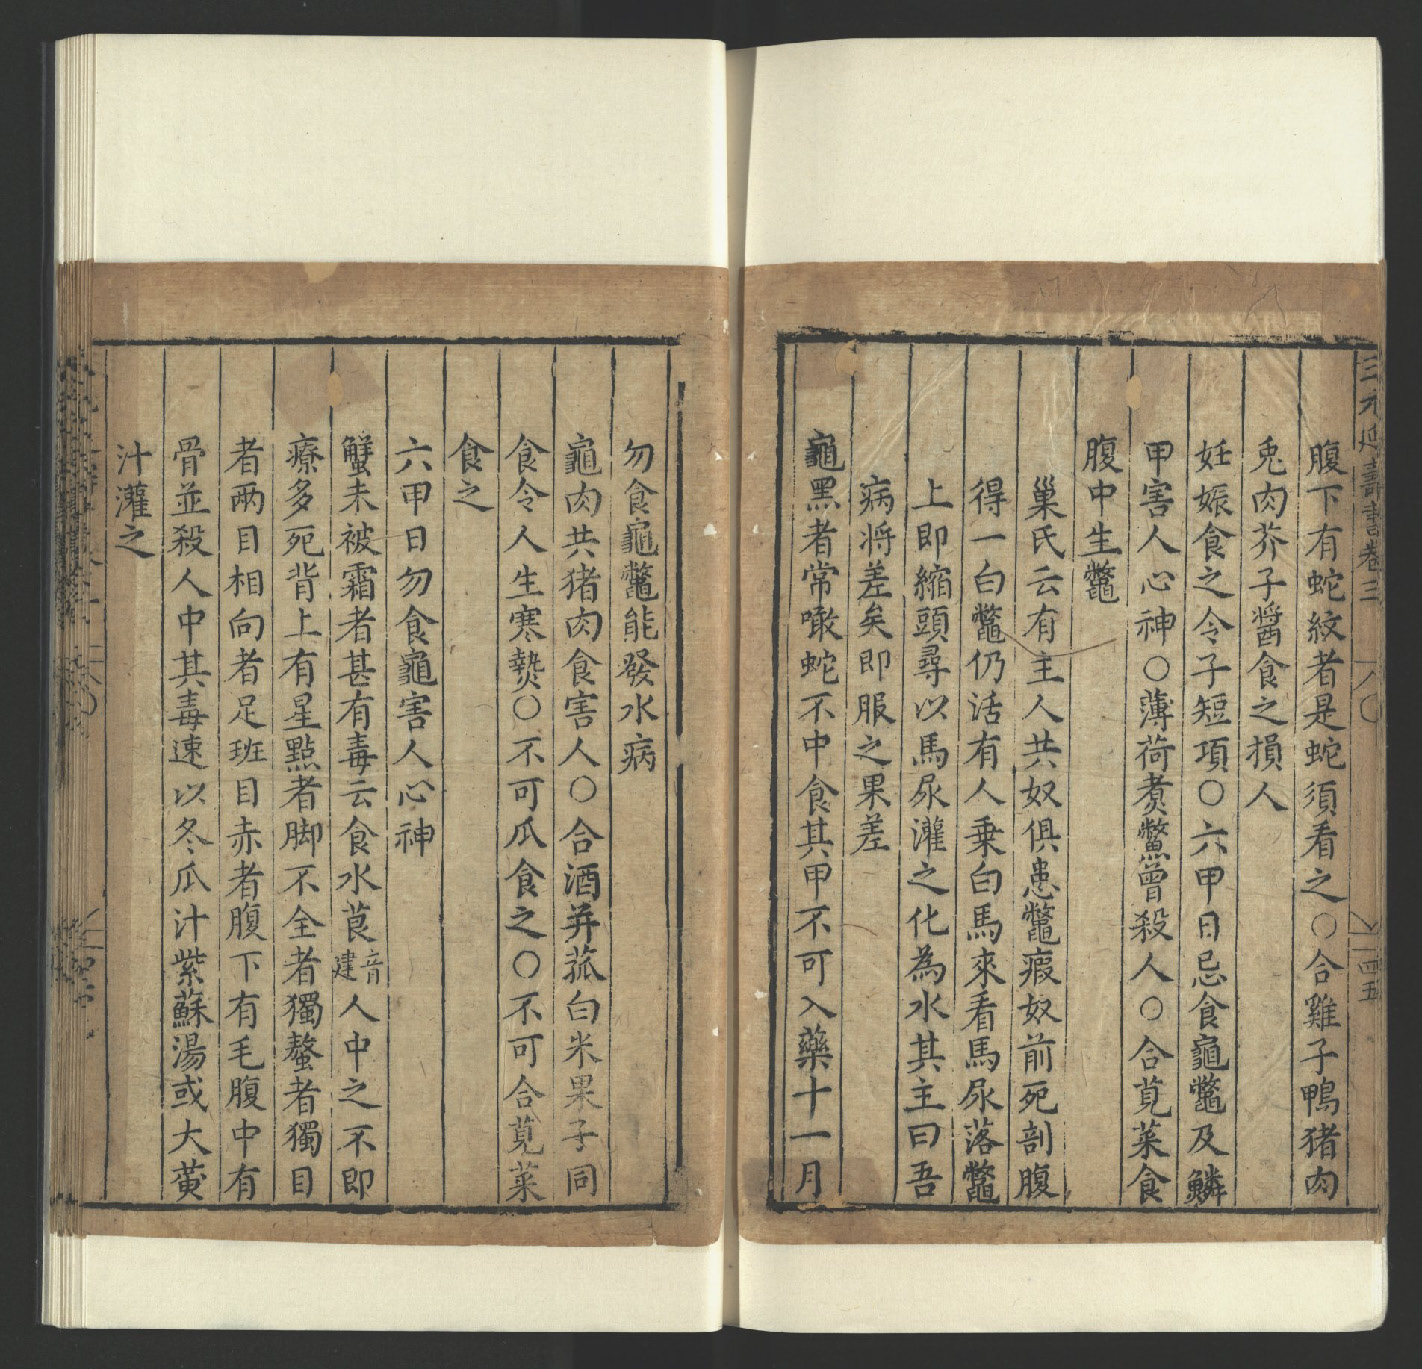 三元延壽書卷三
腹下有蛇紋者是蛇須看之○合雞子鴨猪肉
兎肉芥子醬食之損人
妊娠食之令子短項○六甲日忌食龜鼈及鱗
甲害人心神○薄荷煑鱉曾殺人○合莧菜食
腹中生鼈
巢氏云有主人共奴俱患鼈瘕奴前死剖腹
得一白鼈仍活有人乗白馬來看馬尿落鼈
上即縮頭尋以馬尿灌之化為水其主曰吾
病将差矣即服之果差
龜黑者常噉蛇不中食其甲不可入藥十一月
勿食龜鼈能發水病
龜肉共猪肉食害人○合酒并菰白米果子同
食令人生寒㷫○不可瓜食之○不可合莧菜
食之
六甲日勿食龜害人心神
蟹未被霜者甚有毒云食水莨音建人中之不即
療多死背上有星點者脚不全者獨螯者獨目
者兩目相向者足班目赤者腹下有毛腹中有
骨並殺人中其毒速以冬瓜汁紫蘇湯或大黄
汁灌之